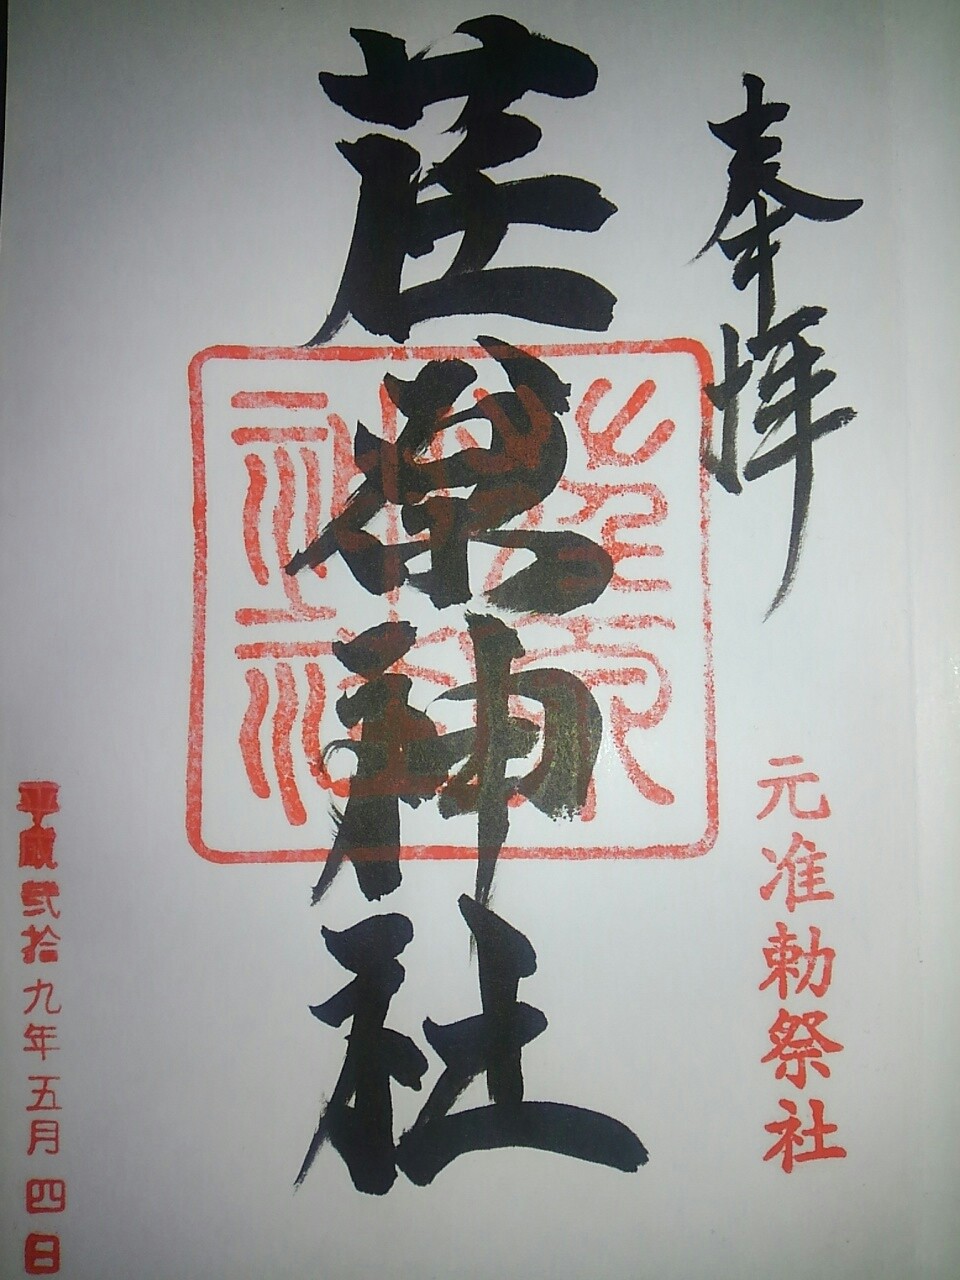 奉拝
元准勅祭社
荏原神社
平成弐拾九年五月四日